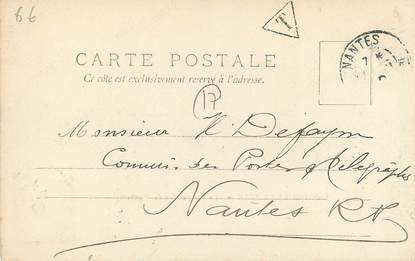 66
T
NANTES
CARTE POSTALE
Ce côté est exclusivement réservé à l'adresse.
17
Monsieur H. Dejaym
Commis des Postes & Télégraphes
Nantes R.P.